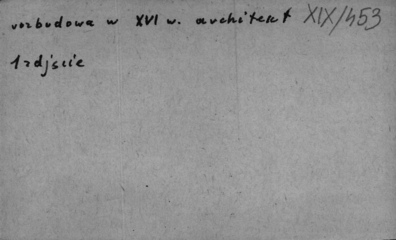 rozbudowa w XVI w. architekt XIX/453
1 zdjęcie